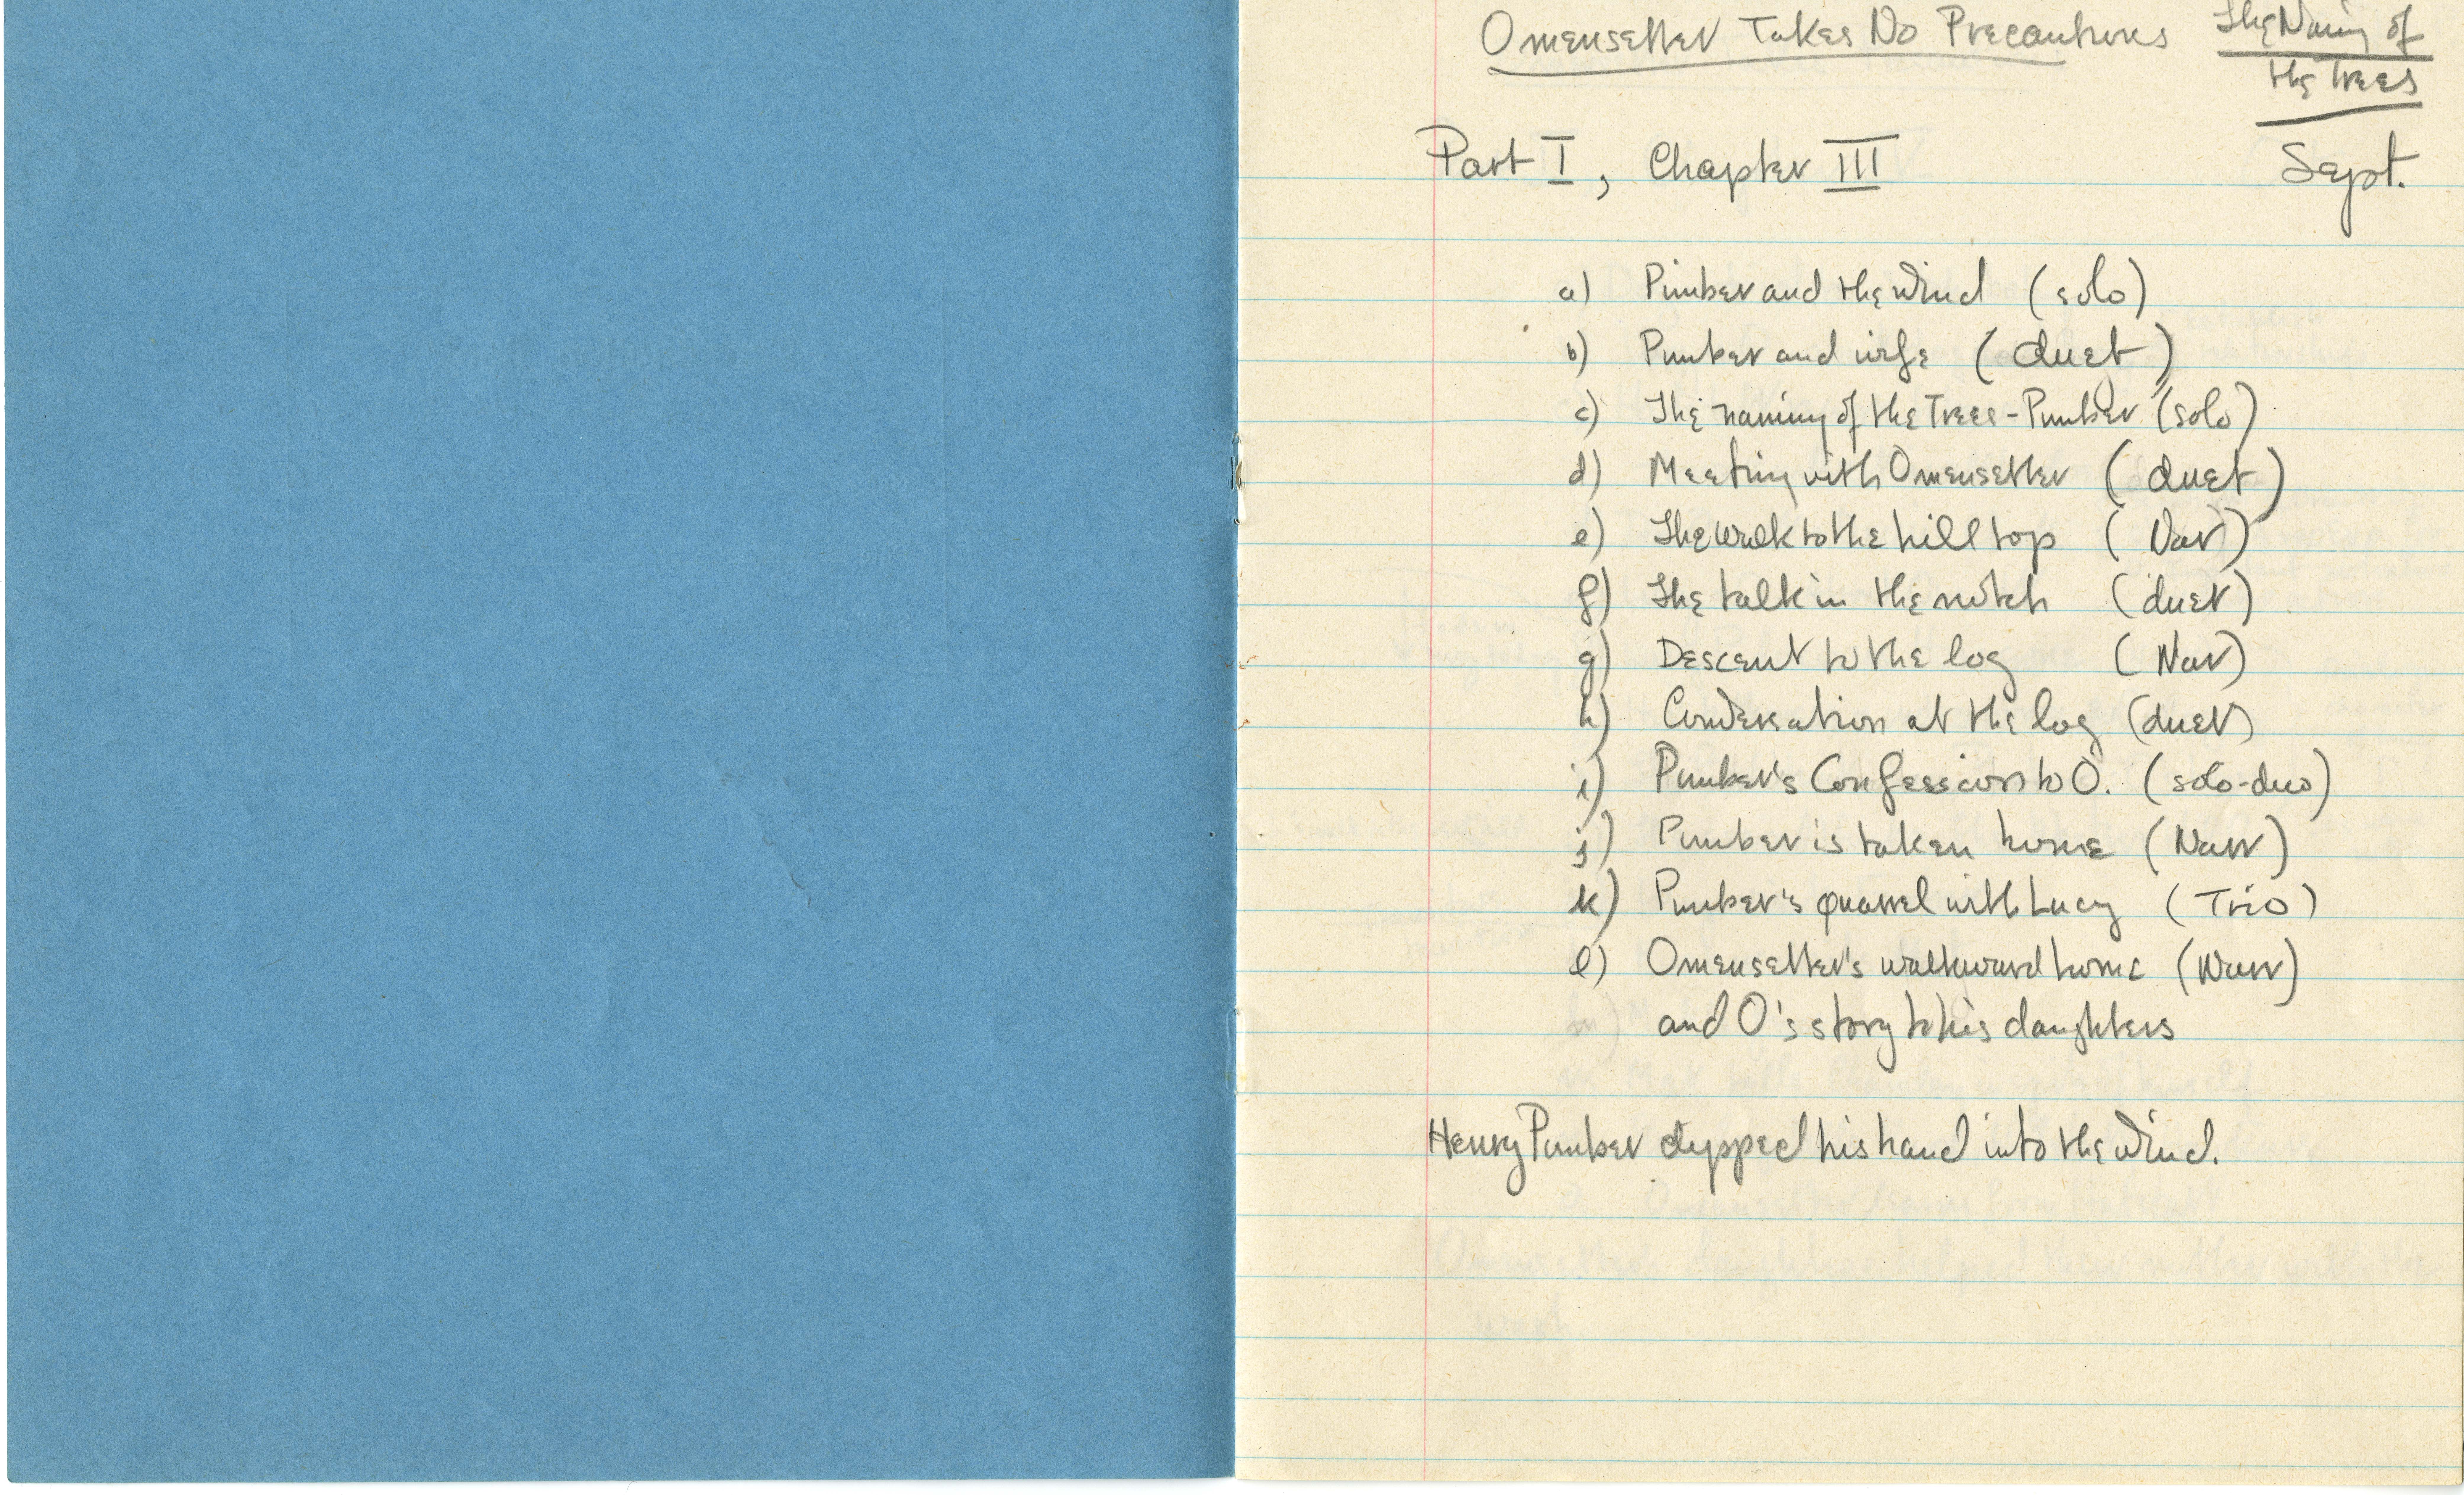 Omensetter Takes No Precautions
The Naming of
the Trees
Part I, Chapter III
Sept.
a) Pimber and the Wind (solo)
b) Pimber and wife (duet)
c) The naming of the Trees - Pimber (solo)
d) Meeting with Omensetter (duet)
e) The walk to the hill top (Nar)
f) The talk in the notch (duet)
g) Descent to the log (Nar)
h) Conversation at the log (duet)
i) Pimber's Confession to O. (solo-duo)
j) Pimber is taken home (Narr)
k) Pimber's quarrel with Lucy (Trio)
l) Omensetter's walk home (Narr)
and O's story to his daughters
Henry Pimber dipped his hand into the wind.